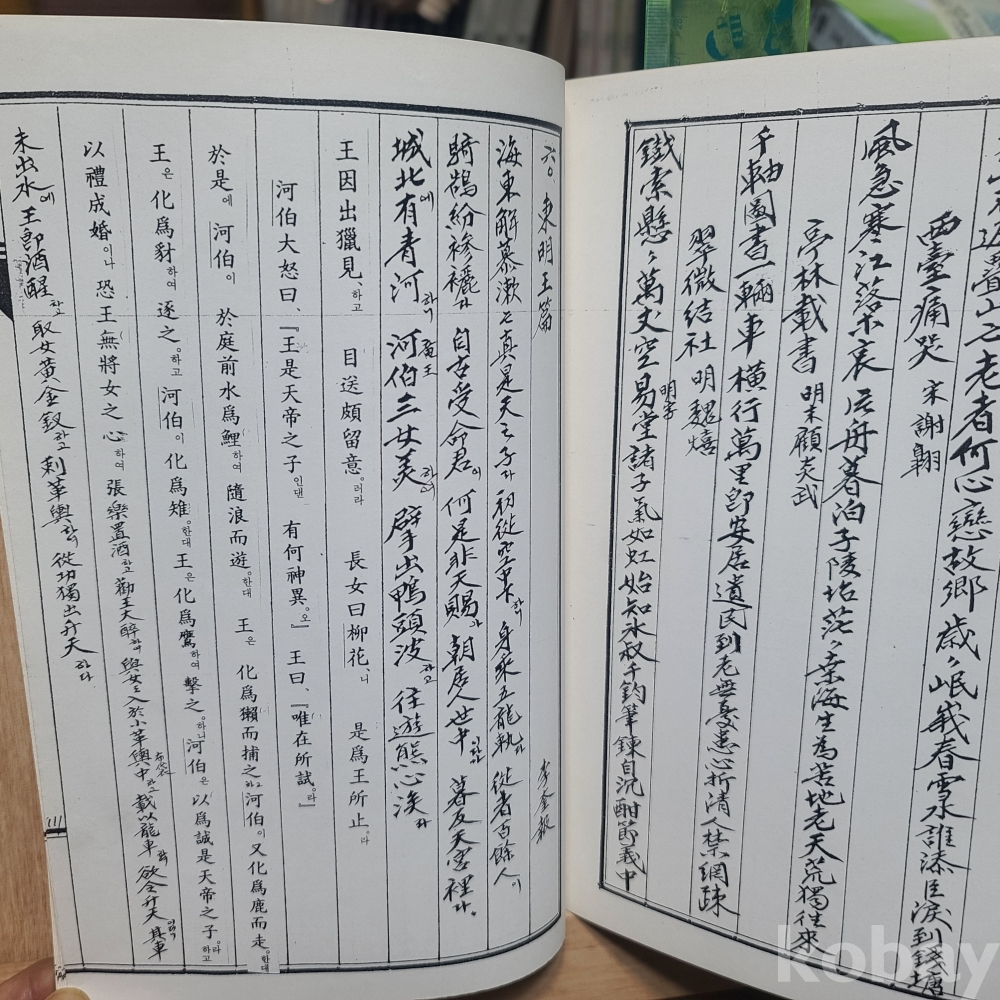 山七老者何心戀故鄉 歲〻岷峨春雪水誰添臣淚到錢塘
西臺痛哭 宋 謝翶
風急寒江落木哀 孤舟暮泊子陵坮茫〻桑海生為苦地老天荒獨往來
亭林載書 明末 顧炎武
千軸圖書一輛車橫行萬里即安居遺民到老無憂患心折清人禁網疎
翠微結社 明 魏熺
鐵索懸〻萬丈空易堂諸子氣如虹始知氷叔千鈞筆鍊自沉酣節義中
六。東明王篇 李奎報
海東解慕漱는真是天之子라 初從空中下 身乘五龍軌 從者百餘人이
騎鵠紛袗襹라 自古受命君이 何是非天賜 朝居人世中 暮反天宮裡라.
城北에有青河하니 河伯三女美 擘出鴨頭波하고 往遊熊心涘라
王因出獵見,하고 目送頗留意。러라 長女曰柳花,니 是爲王所止。라
河伯大怒曰,『王是天帝之子인댄 有何神異。오』 王曰,『唯在所試。라』
於是에 河伯이 於庭前水爲鯉하여 隨浪而遊。한대 王은 化爲獺而捕之하고河伯이又化爲鹿而走。한대
王은 化爲豺하여 逐之。하고河伯이化爲雉。한대王은化爲鷹하여擊之。하니河伯은以爲誠是天帝之子라하고
以禮成婚이나 恐王無將女之心하여 張樂置酒하고 勸王大醉 與女王入於小革輿中하고 載以龍車 欲令升天 其車
未出水에王卽酒醒하고 取女黃金釵하고刺革輿 從功獨出升天하다
111
kobay